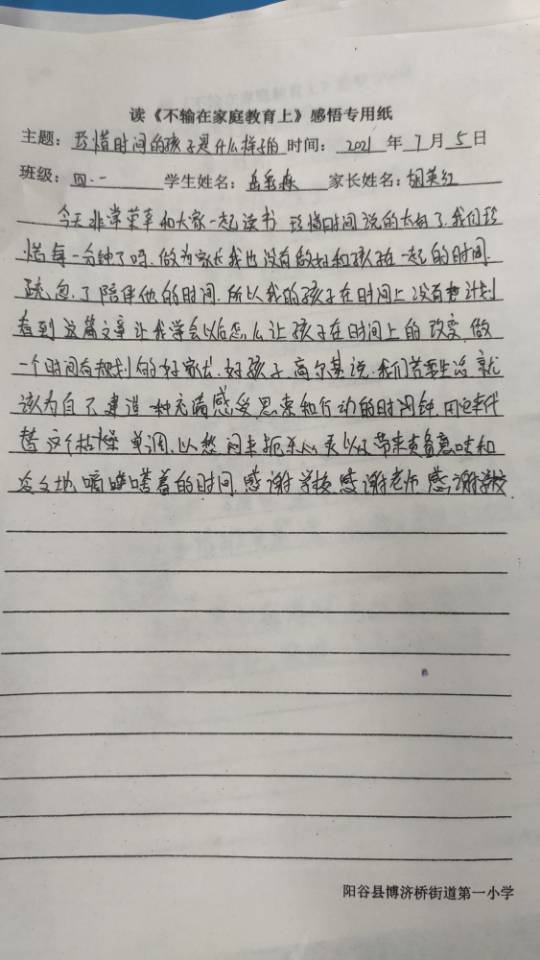 读《不输在家庭教育上》感悟专用纸
主题：珍惜时间的孩子是什么样子的 时间：2021 年 7 月 5 日
班级：四.一 学生姓名：岳 家长姓名：胡英红
今天非常荣幸和大家一起读书 珍惜时间说的太好了.我们珍
惜每一分钟了吗.做为家长我也没有做好和孩子在一起的时间
疏忽了陪伴他的时间.所以我的孩子在时间上没有计划
看到这篇文章让我学会以后怎么让孩子在时间上的改变.做
一个时间有规划的好家长.好孩子 高尔基说.我们若要生活 就
该为自己建造一种充满感受.思索和行动的时间钟.用它来代
替这个枯燥 单调.以愁闷来扼杀心灵以及带来责备意味和
冷冷地嘀嗒着的时间.感谢学校 感谢老师 感谢学校
阳谷县博济桥街道第一小学